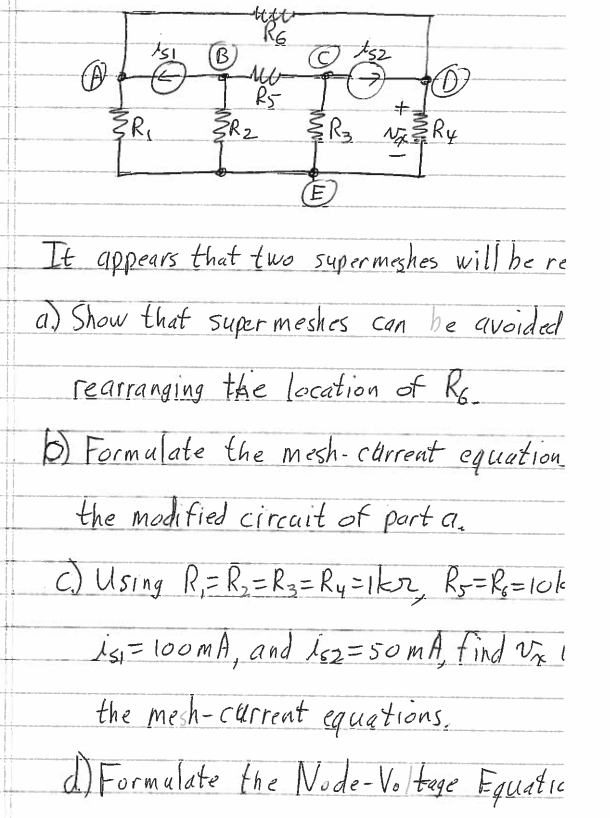 R6
A is1 B C is2 D
R5
R1 R2 R3 + vx - R4
E
It appears that two supermeshes will be re
a.) Show that supermeshes can be avoided
rearranging the location of R6.
b) Formulate the mesh-current equation
the modified circuit of part a.
c.) Using R1=R2=R3=R4=1kΩ, R5=R6=10k
is1=100mA, and is2=50mA, find vx
the mesh-current equations.
d.) Formulate the Node-Voltage Equatio